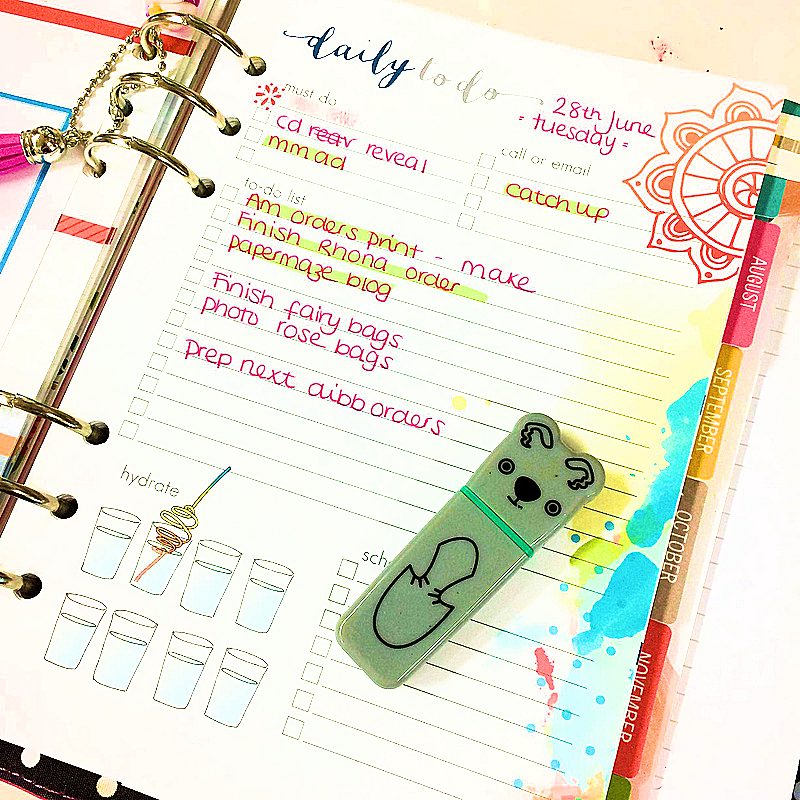 daily to do
28th June
- tuesday -
must do
cd rear reveal
mm ad
call or email
catch up
to-do list
Am orders print - make
Finish Rhona order
papermaze blog
Finish fairy bags
photo rose bags
Prep next dibb orders
hydrate
sch
AUGUST
SEPTEMBER
OCTOBER
NOVEMBER